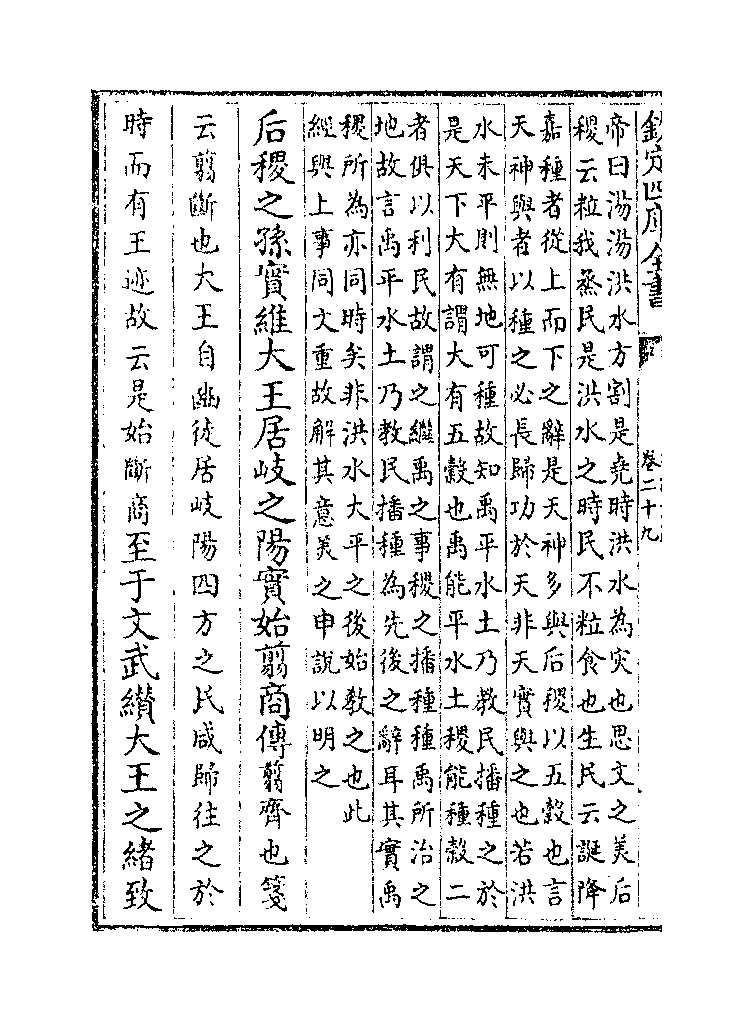 欽定四庫全書
卷二十九
帝曰湯湯洪水方割是堯時洪水為災也思文之美后
稷云粒我烝民是洪水之時民不粒食也生民云誕降
嘉種者從上而下之辭是天神多與后稷以五穀也言
天神與者以種之必長歸功於天非天實與之也若洪
水未平則無地可種故知禹平水土乃教民播種之於
是天下大有謂大有五穀也禹能平水土稷能種穀二
者俱以利民故謂之繼禹之事稷之播種種禹所治之
地故言禹平水土乃教民播種為先後之辭耳其實禹
稷所為亦同時矣非洪水大平之後始教之也此
經與上事同文重故解其意美之申說以明之
后稷之孫實維大王居岐之陽實始翦商傳翦齊也箋
云翦斷也大王自豳徙居岐陽四方之民咸歸往之於
時而有王迹故云是始斷商至于文武纘大王之緒致